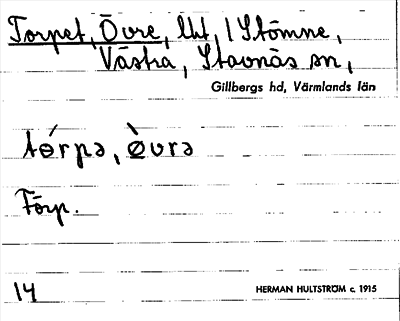 Torpet, Övre, lht, 1 Stömne,
Västra, Stavnäs sn,
Gillbergs hd, Värmlands län
tǿrpə, ø̀vrə
Förp.
14
HERMAN HULTSTRÖM c. 1915